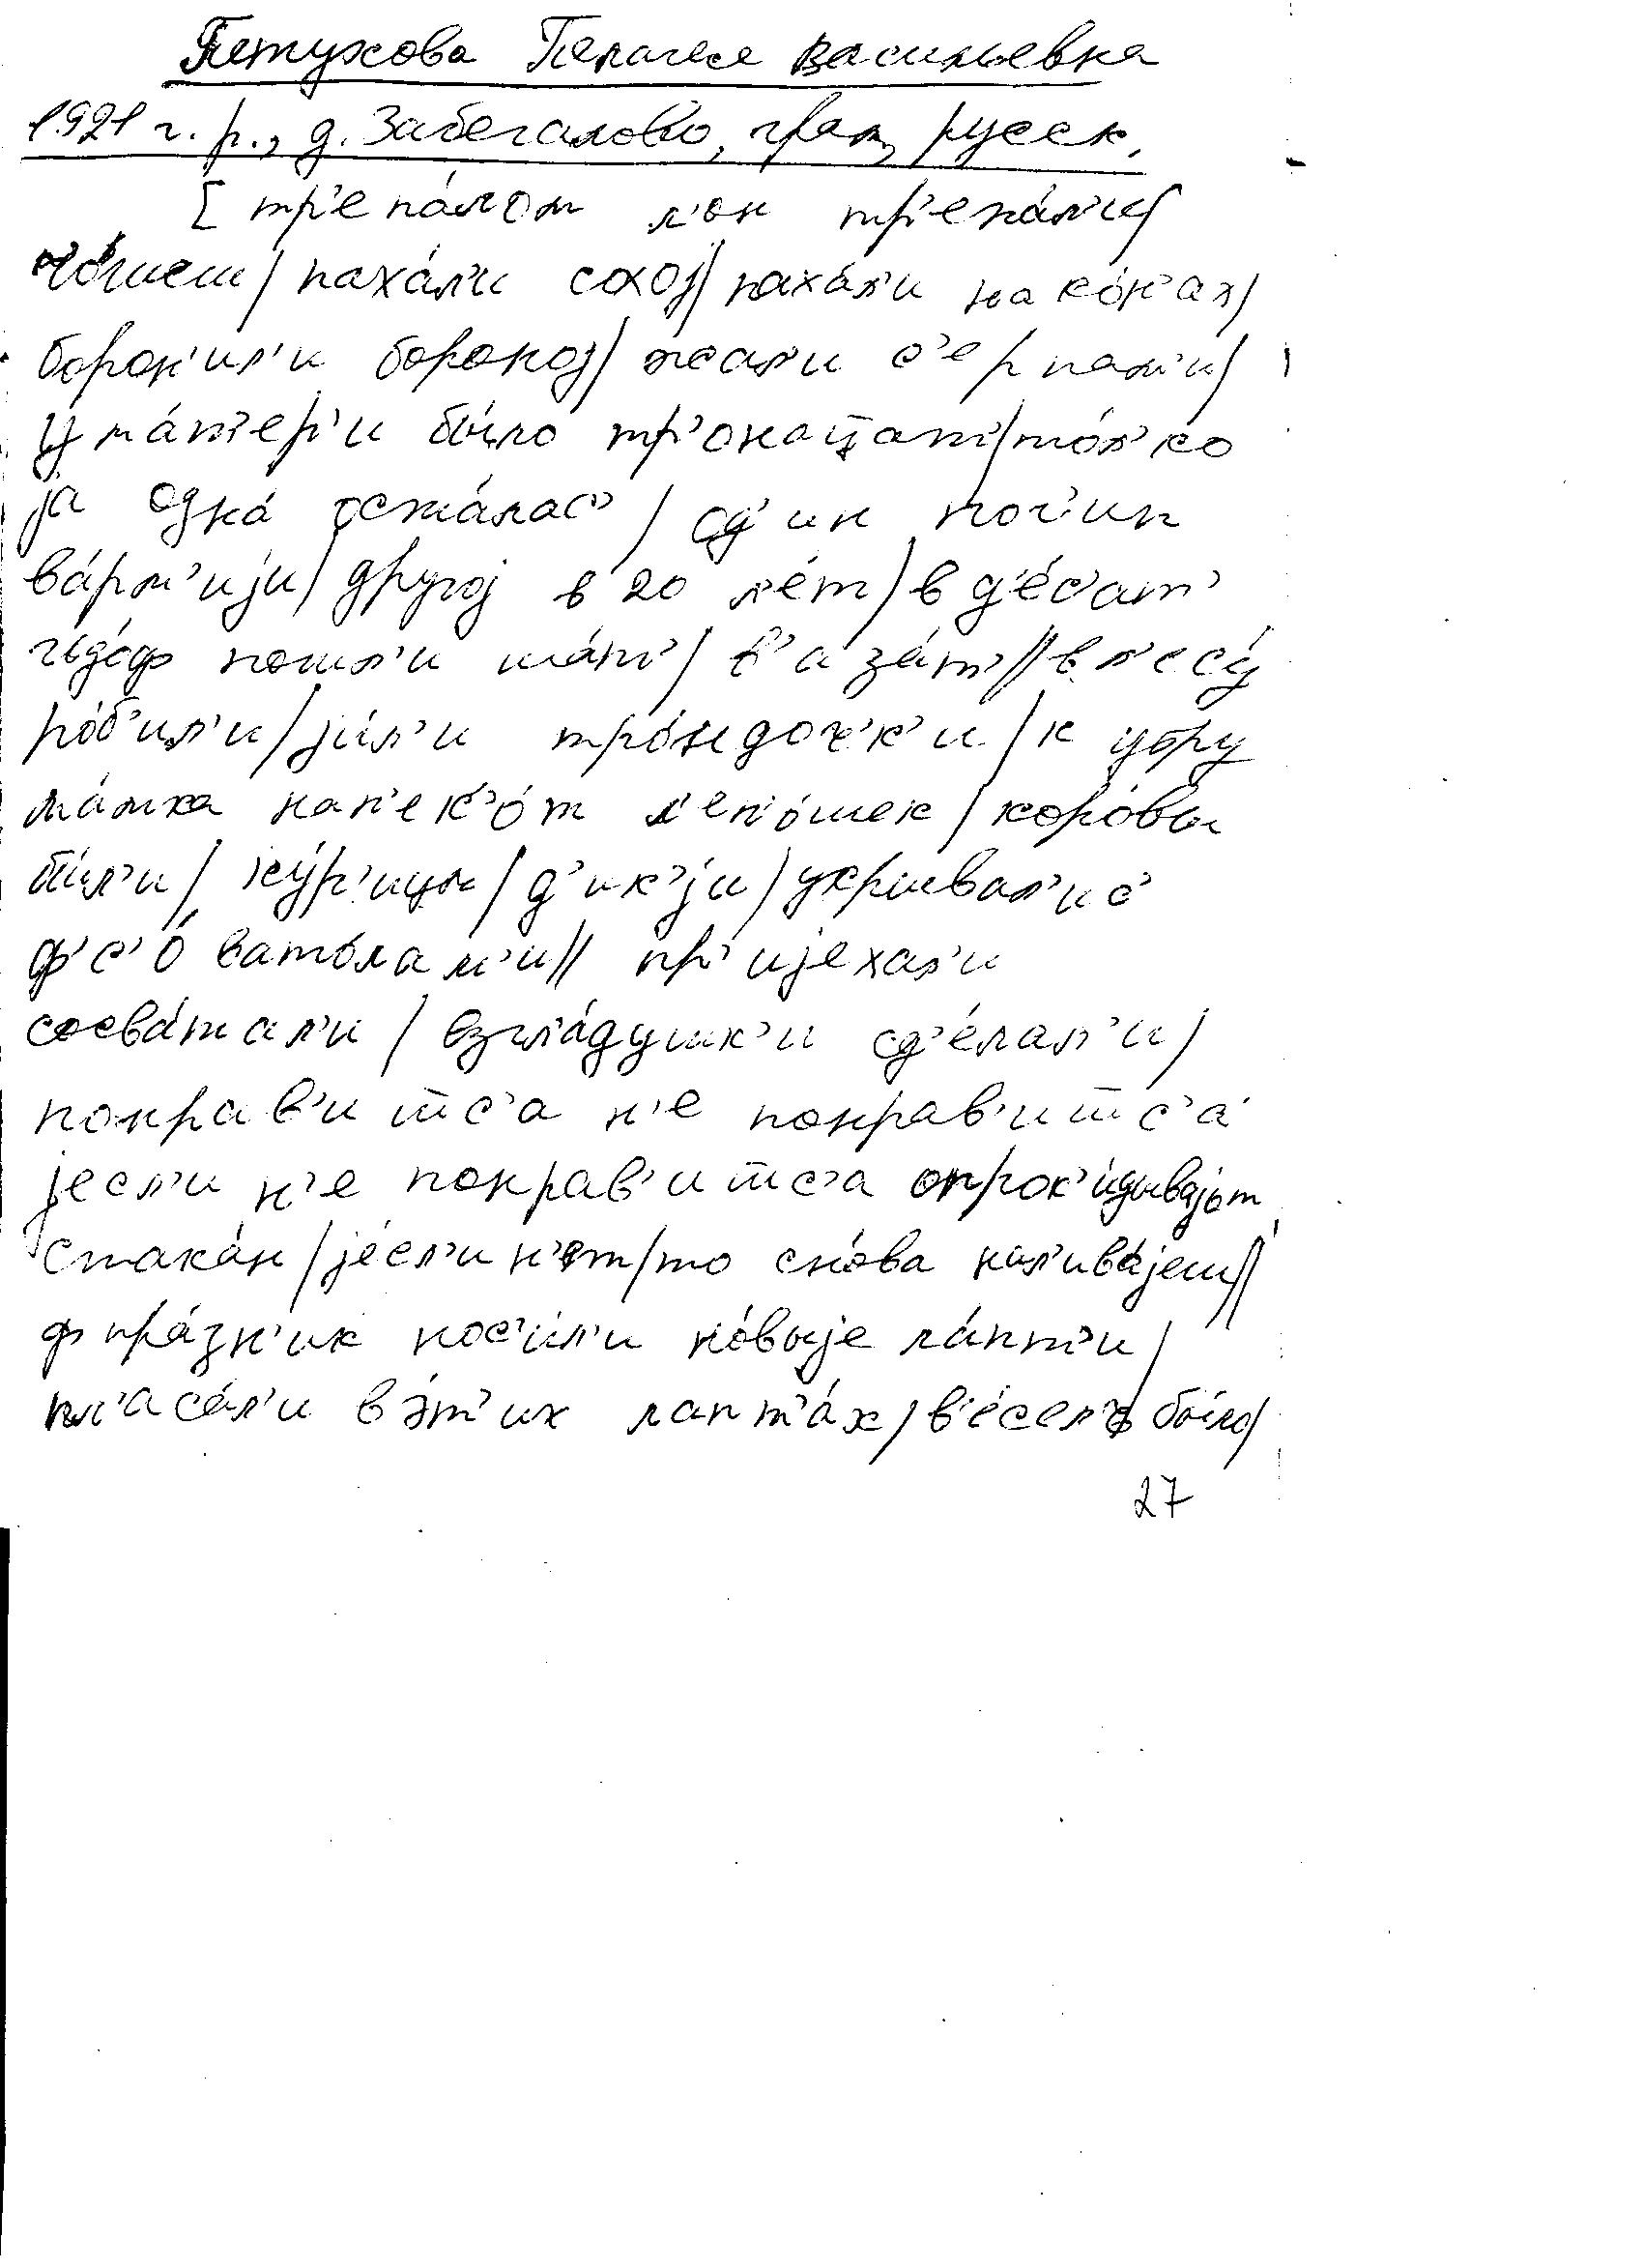 Петухова Пелагея Васильевна
1921 г. р., д. Забегалово, грам, русск.
[ тр'епа́лом л'он тр'епа́л'и/
чо́шеш/ паха́л'и сохој/ паха́л'и на ко́н'ах/
борон'ил'и бороној/ жал'и с'ерпам'и/
у ма́т'ер'и бы́ло тр'онац̄ат'/то́л'ко
ја одна́ оста́лас'/ од'ин пог'ип
в а́рм'ији/ другој в 20 л'ет/ в д'е́с'ат'
гъдо́ф пошл'и шат'/ в'аза́т'// в л'есу́
ро́б'ил'и/ је́л'и тро́ндоч'к'и/ к
ма́мка нап'ек'о́т л'еп'о́шек/ коро́вы
бы́л'и/ ку́р'ицы/ д'ик'ји/ укрывал'ис'
ф'с'о́ вато́лам'и// пр'ијехал'и
сосва́тал'и/ взгл'а́душк'и сд'е́лал'и/
понрав'ит̄с'а н'е понрав'ит̄с'а
јесл'и н'е понрав'ит̄с'а опрок'и́дывајът
стака́н/ је́сл'и н'ет/то сно́ва нал'ива́јеш//
ф пра́зн'ик нос'и́л'и но́выје ла́пт'и/
пл'аса́л'и в э́т'их лапт'а́х/ в'е́сел'ъ бы́ло/
27